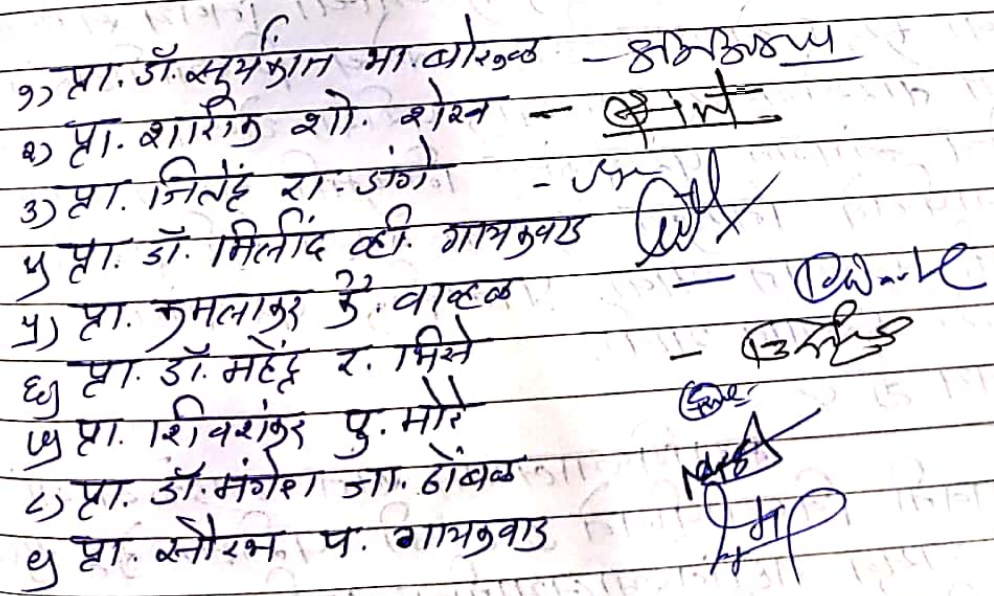 १) प्रा. डॉ. सूर्यकांत भा. बोरुळ -
२) प्रा. शारीक शो. शेख -
३) प्रा. जितेंद्र रा. डांगे -
४) प्रा. डॉ. मिलींद व्ही. गायकवाड
५) प्रा. कमलाकर कै. वाव्हळ -
६) प्रा. डॉ. महेंद्र र. भिसे -
७) प्रा. शिवशंकर पु. मोरे
८) प्रा. डॉ. मंगेश जा. ठोंबळ
९) प्रा. सौरभ प. गायकवाड